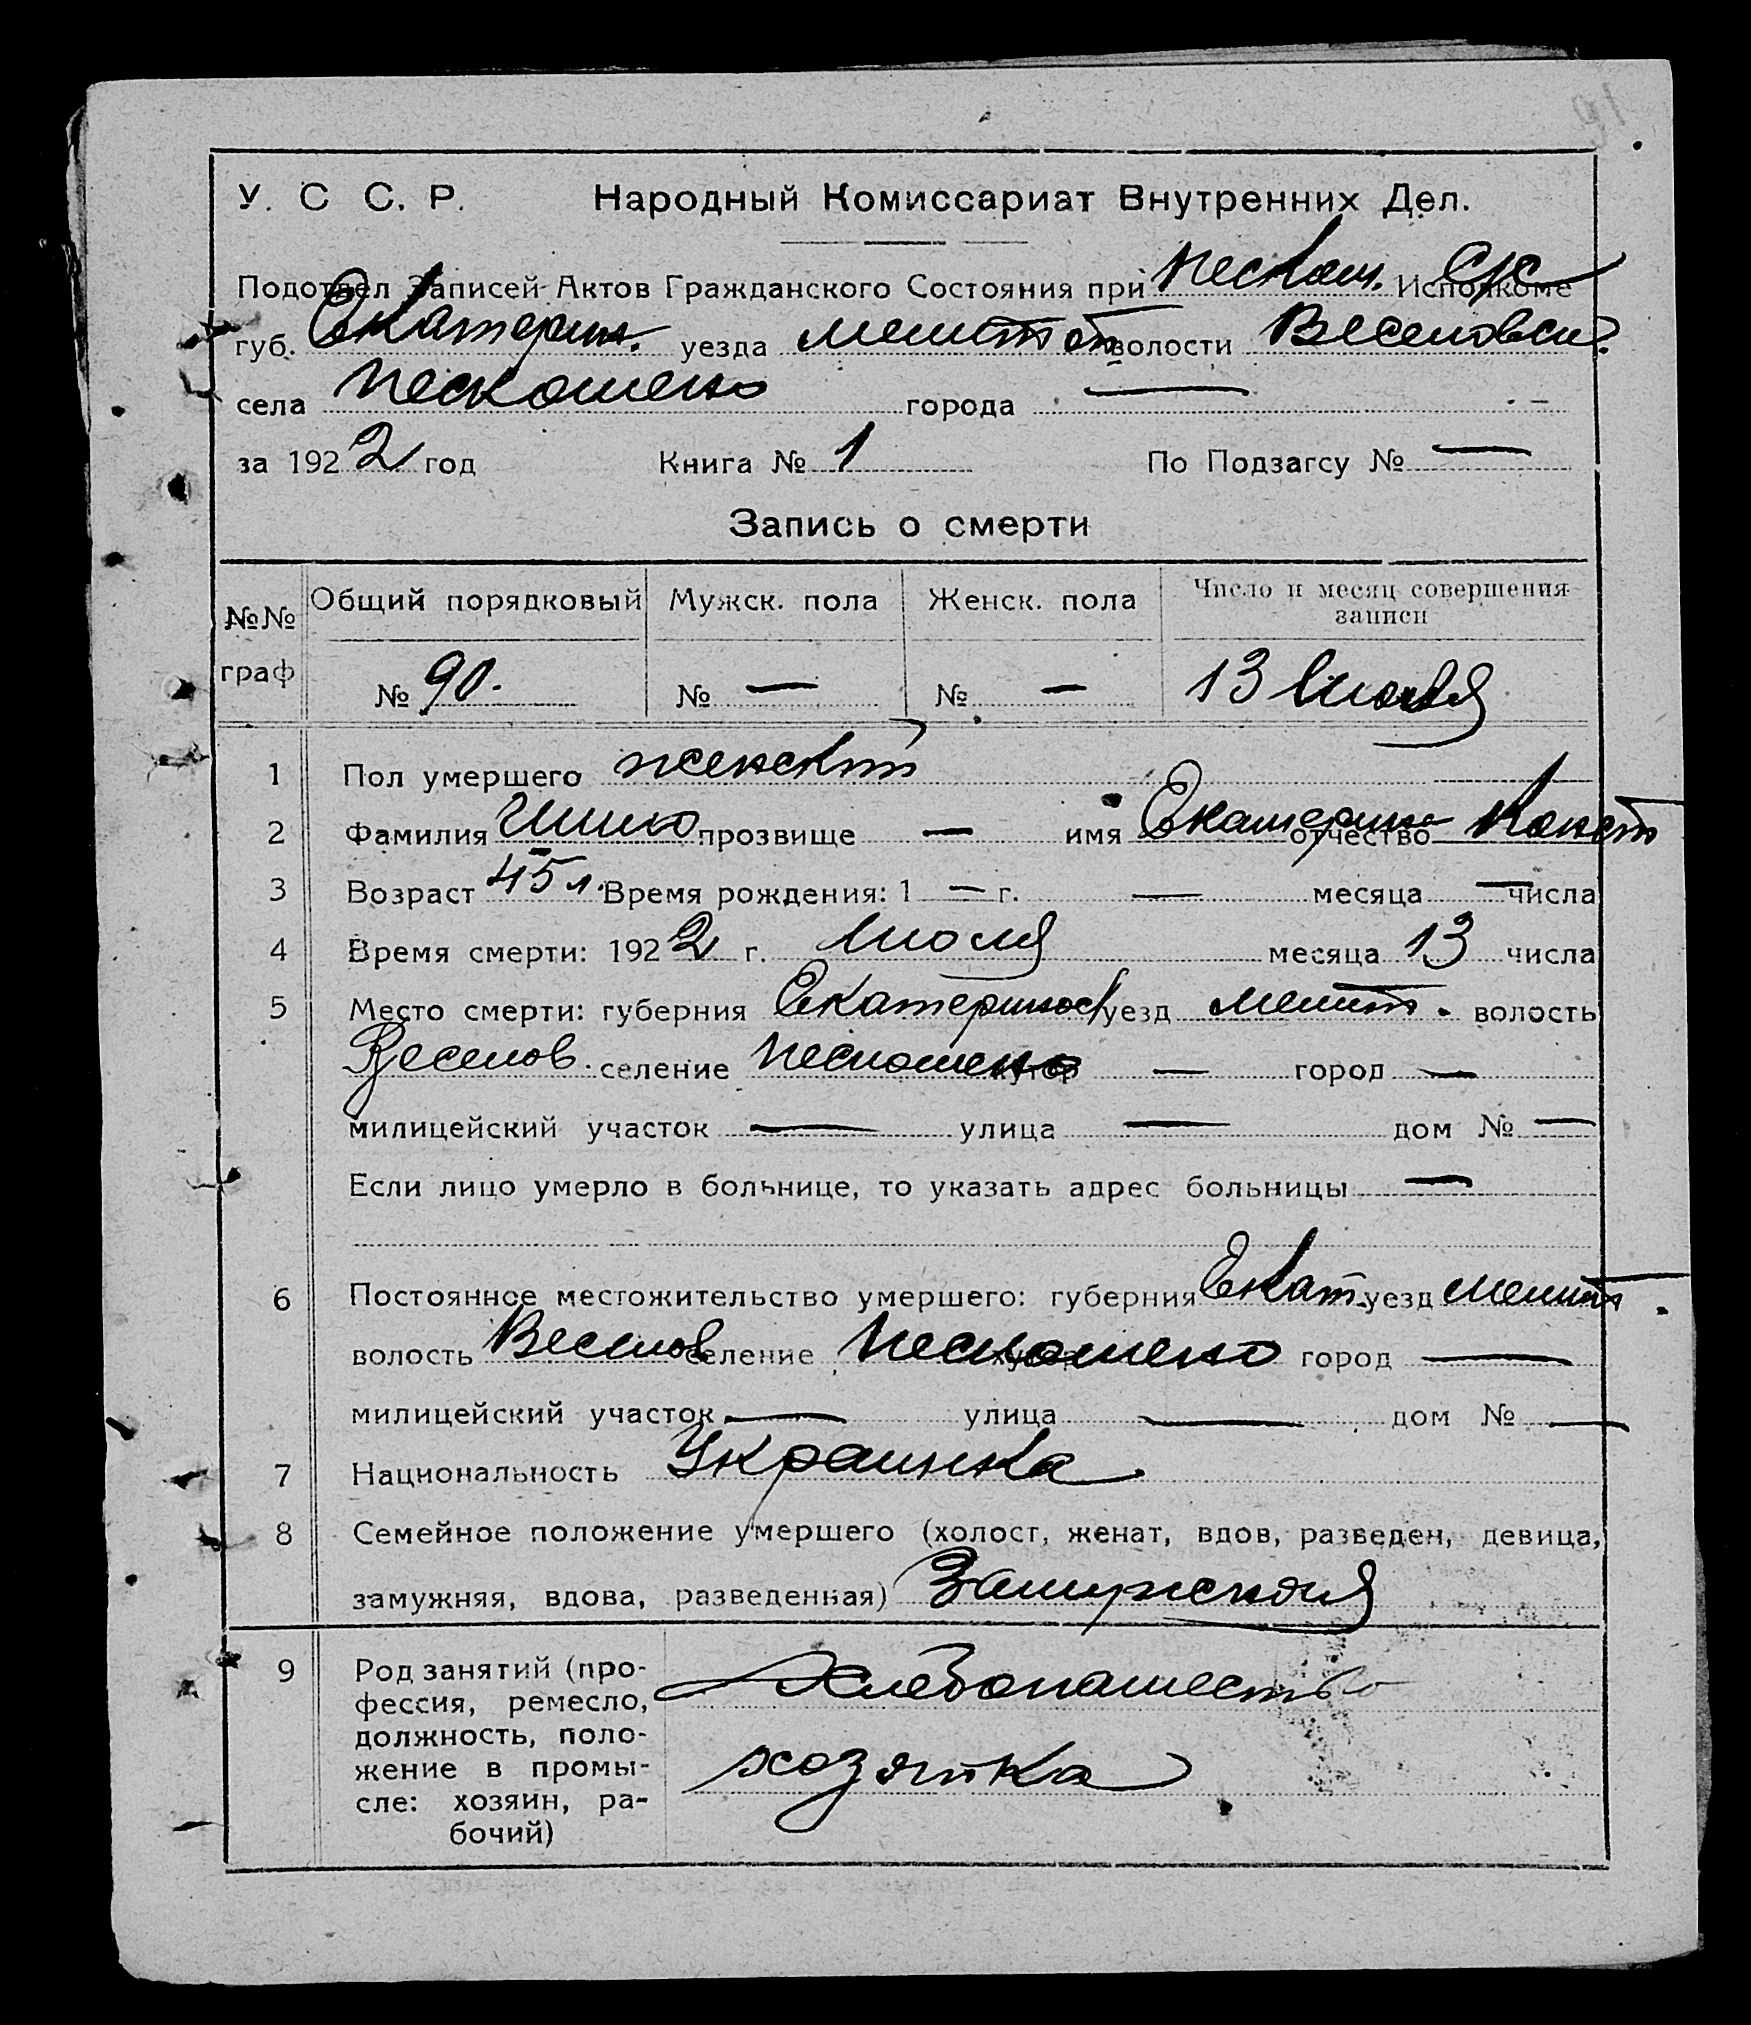 91
У. С С. Р. Народный Комиссариат Внутренних Дел.
Подотдел Записей Актов Гражданского Состояния при Нескош. Исполкоме С/С
губ. Екатерин. уезда Мелитоп волости Веселовск.
села Нескошено города —
за 1922 год Книга № 1 По Подзагсу № —
Запись о смерти
№№ граф Общий порядковый Мужск. пола Женск. пола Число и месяц совершения записи
№ 90. № — № — 13 Июля
1 Пол умершего женский
2 Фамилия прозвище — имя Екатерина отчество Конст
3 Возраст 45 л. Время рождения: 1 — г. — месяца — числа
4 Время смерти: 1922 г. Июля месяца 13 числа
5 Место смерти: губерния Екатеринос уезд Мелит. волость
Веселов. селение Нескошено хутор — город —
милицейский участок — улица — дом № —
Если лицо умерло в больнице, то указать адрес больницы —
6 Постоянное местожительство умершего: губерния Екат. уезд Мелит.
волость Веселов селение Нескошено город —
милицейский участок — улица — дом № —
7 Национальность Украинка
8 Семейное положение умершего (холост, женат, вдов, разведен, девица,
замужняя, вдова, разведенная) Замужняя
9 Род занятий (про- Хлебопашество
фессия, ремесло,
должность, поло-
жение в промы- хозяйка
сле: хозяин, ра-
бочий)